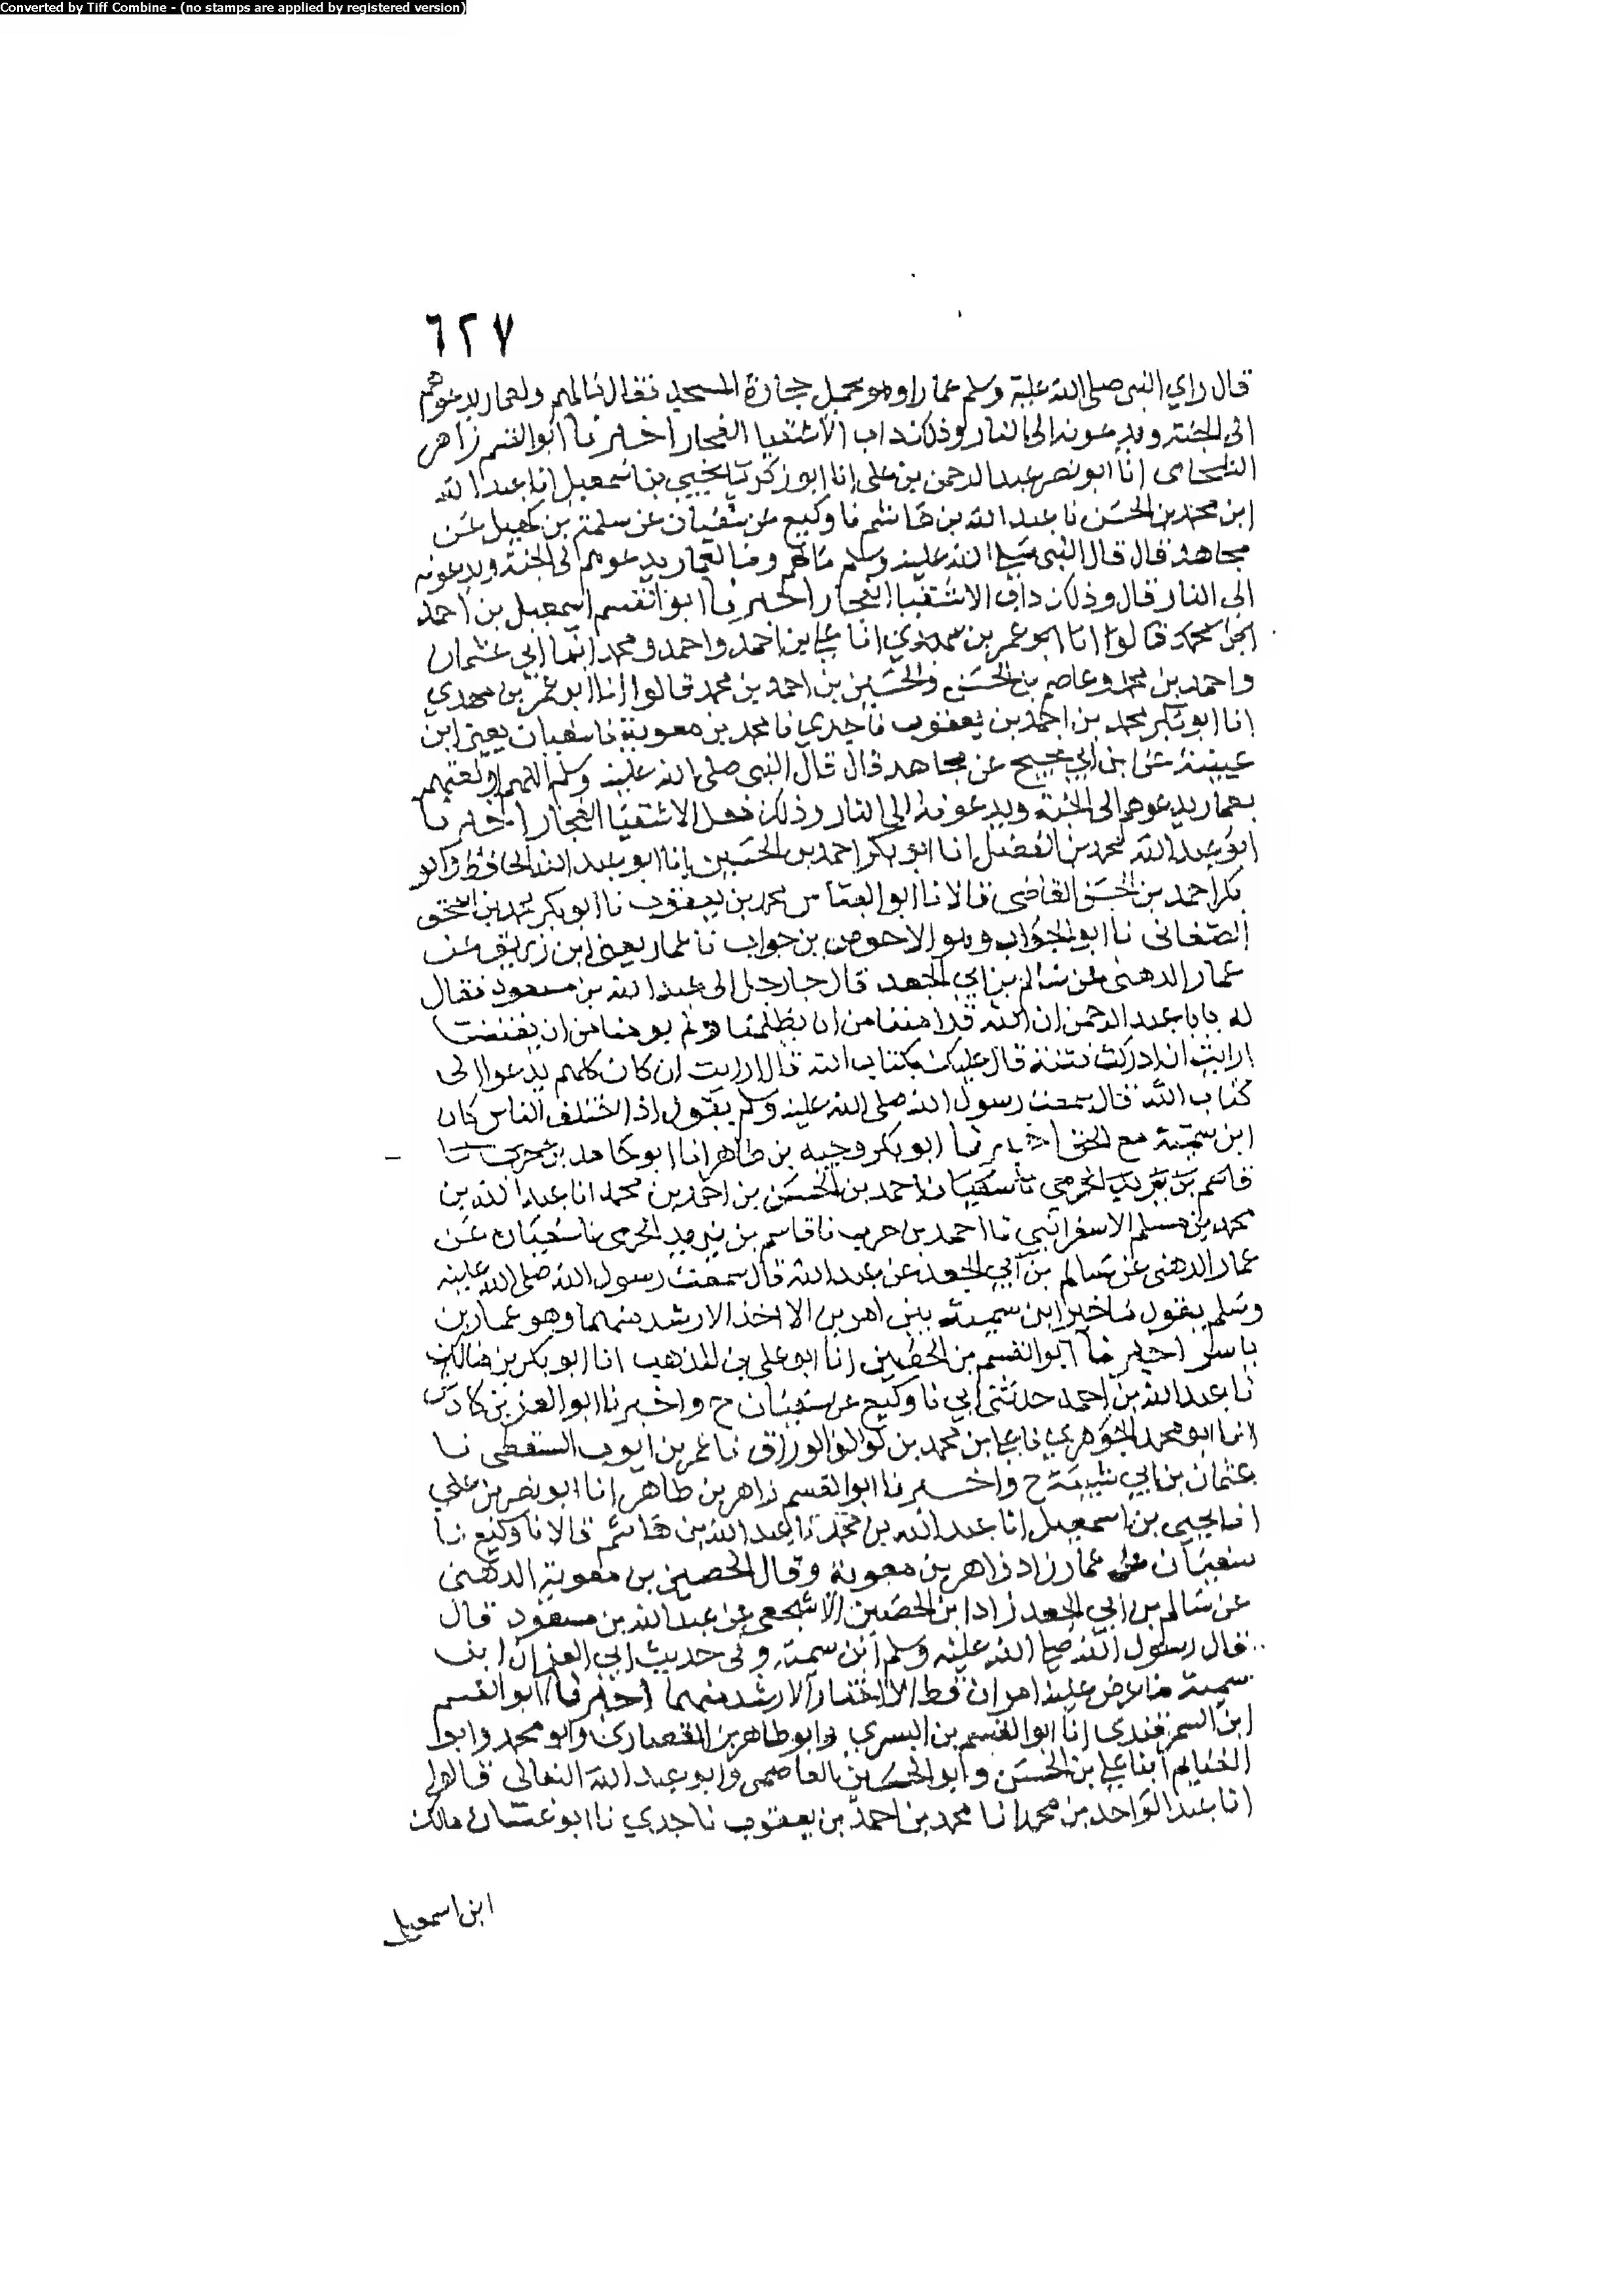 Converted by Tiff Combine - (no stamps are applied by registered version)
٦٢٧
قال راي النبي صلى الله علية وسلم عمارا وهو يحمل حجارة المسجد فقال مالهم ولعمار يدعوهم
الى الجنة ويدعونه الى النار وذلك داب الاشقيا الفجار اخبرنا ابو القسم زاهر
الشحامي انا ابو نصر عبد الرحمن بن علي انا ابو زكريا يحيي بن اسمعيل انا عبد الله
ابن محمد بن الحسن نا عبد الله بن هاشم نا وكيع عن سفيان عن سلمة بن كهيل عن
مجاهد قال قال النبي صلى الله عليه وسلم مالهم وما لعمار يدعوهم الى الجنة ويدعونه
الى النار قال وذلك داب الاشقيا الفجار اخبرنا ابو القسم اسمعيل بن احمد
محمد قالوا انا ابو عمر بن مهدي انا علي بن احمد واحمد ومحمد ابنا ابي عثمان
واحمد بن محمد وعاصم بن الحسن والحسين بن احمد بن محمد قالوا انا ابو عمر بن مهدي
انا ابو بكر محمد بن احمد بن يعقوب نا جدي نا محمد بن معوية نا سفيان يعني ابن
عيينة عن ابن ابي نجيح عن مجاهد قال قال النبي صلى الله عليه وسلم اللهم اولعتهم
بعمار يدعوهم الى الجنة ويدعونه الى النار وذلك فعل الاشقيا الفجار اخبرنا
ابو عبد الله محمد بن الفضل انا ابو بكر احمد بن الحسين انا ابو عبد الله الحافظ وابو
بكر احمد بن الحسن القاضي قالا نا ابو العباس محمد بن يعقوب نا ابو بكر محمد بن اسحق
الصغاني نا ابو الجواب وهو الاحوص بن جواب نا عمار يعني ابن زريق عن
عمار الدهني عن سالم بن ابي الجعد قال جا رجل الى عبد الله بن مسعود فقال
له يابا عبد الرحمن ان الله قد امننا من ان يظلمنا ولم يومنا من ان يفتننا
ارايت ان ادركت فتنة قال عليك بكتاب الله قال ارايت ان كان كلهم يدعوا الى
كتاب الله قال سمعت رسول الله صلى الله عليه وسلم يقول اذا اختلف الناس كان
ابن سمية مع الحق اخبرنا ابو بكر وجيه بن طاهر انا ابو حامد
قاسم بن يزيد الجرمي نا سفيان احمد بن الحسن بن احمد بن محمد انا عبد الله بن
محمد بن مسلم الاسفرائيني نا احمد بن حرب نا قاسم بن يزيد الجرمي نا سفيان عن
عمار الدهني عن سالم بن ابي الجعد عن عبد الله قال سمعت رسول الله صلى الله عليه
وسلم يقول ما خير ابن سمية بين امرين الا اخذ الارشد منهما وهو عمار بن
ياسر اخبرنا ابو القسم بن الحصين انا ابو علي بن المذهب انا ابو بكر بن مالك
نا عبد الله بن احمد حدثني ابي نا وكيع عن سفيان ح واخبرنا ابو العز بن كادش
انا ابو محمد الجوهري نا علي بن محمد بن لولو الوراق نا عمر بن ايوب السقطي نا
عثمان بن ابي شيبة ح واخبرنا ابو القسم زاهر بن طاهر انا ابو نصر بن علي
انا يحيى بن اسمعيل انا عبد الله بن محمد نا عبد الله بن هاشم قالا نا وكيع نا
سفيان عن عمار زاد زاهر بن معوية وقال الحصين بن معوية الدهني
عن سالم بن ابي الجعد زاد ابن الحصين الاشجعي عن عبد الله بن مسعود قال
قال رسول الله صلى الله عليه وسلم ابن سمية وفي حديث ابي العز ان ابن
سمية ما عرض عليه امران قط الا اختار الارشد منهما اخبرنا ابو القسم
ابن السمرقندي انا ابو القسم بن البسري وابو طاهر بن القصاري وابو محمد وابو
الغنايم ابنا علي بن الحسن وابو الحسين العاصمي وابو عبد الله النعالي قالوا
انا عبد الواحد بن محمد انا محمد بن احمد بن يعقوب نا جدي نا ابو غسان مالك
ابن اسمعيل